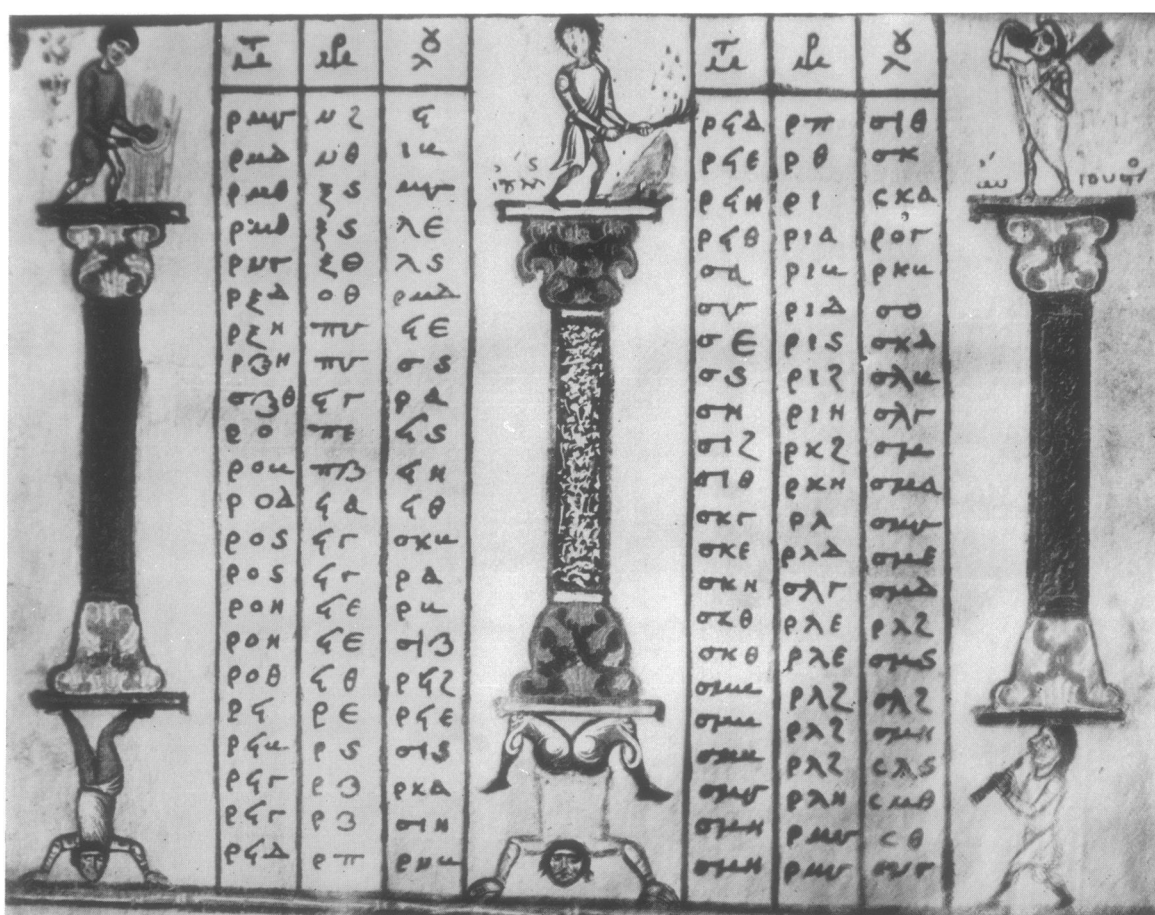 ρμγ νζ ϟ
ρμδ νθ ιβ
ρμθ ξς μγ
ρμθ ξς λε
ρνγ ξθ λς
ρξδ οθ ρμδ
ρξη πγ ϟε
ρξη πγ σς
σξθ ϟγ ρα
ρο πε ϟς
ροβ πζ ϟη
ροδ ϟα ϟθ
ρος ϟγ σκβ
ρος ϟγ ρα
ροη ϟε ρβ
ροη ϟε σιζ
ροθ ϟθ ρϟζ
ρϟ ρε ρϟε
ρϟβ ρς σις
ρϟγ ρζ ρκα
ρϟγ ρζ σιη
ρϟδ ρπ ρνβ
ρϟδ ρπ σιθ
ρϟε ρθ σκ
ρϟη ρι σκα
ρϟθ ρια ρογ
σα ριβ ρκβ
σγ ριδ σο
σε ρις σκδ
σς ριζ σλβ
ση ριη σλγ
σιζ ρκζ σμ
σιθ ρκη σμδ
σκγ ρλ σμγ
σκε ρλδ σμε
σκη σλγ σμδ
σκθ ρλε ρλζ
σκθ ρλε σμς
σμβ ρλζ σλζ
σμβ ρλζ σμη
σμβ ρλζ σλς
σμγ ρλη σμθ
σμη ρμγ σθ
σμη ρμγ σνγ